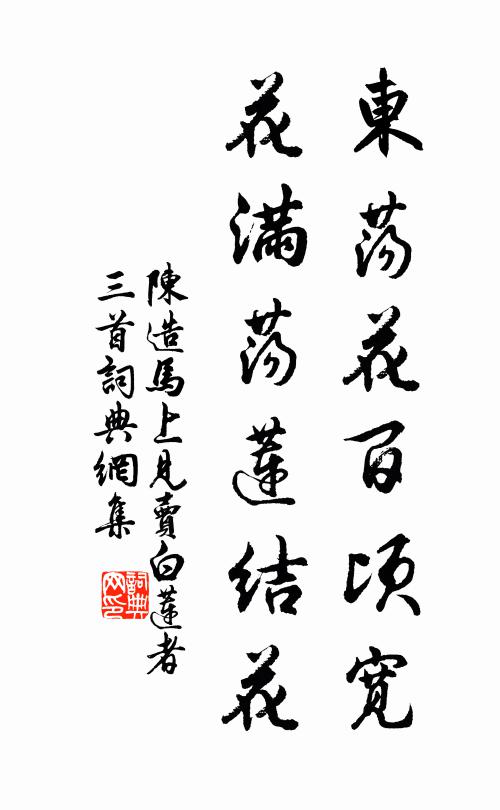 東荡花百頃寬
花滿荡蓮結花
陳造馬上見賣白蓮者
三首詞典網集
詞典
网印